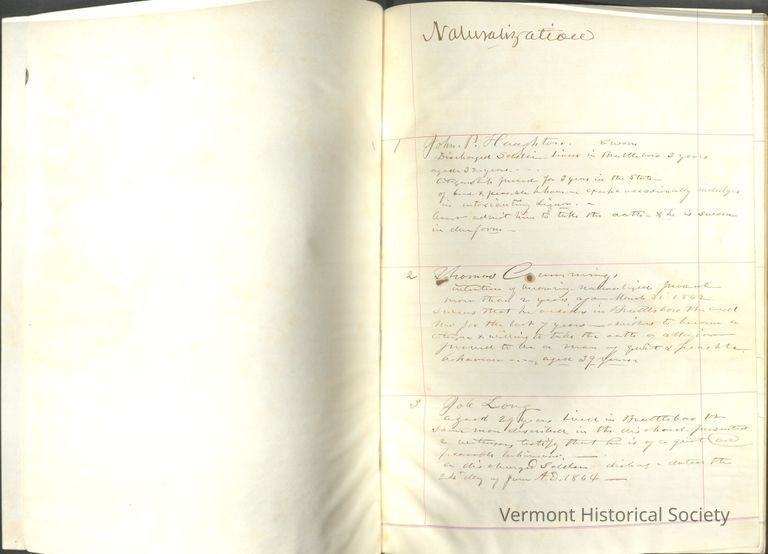 Naturalization
1 John P. Haughton. Sworn
Discharged Soldier lives in Brattleboro 3 years
aged 32 years
for 3 years in the State
of good & peaceable behavior except occasionally indulges
in intoxicating liquor. —
Court admit him to take the oath & he is sworn
in due form —
2 Thomas Cummings
intention of becoming naturalized proved
more than 2 years ago March 31 1862
Swears that he resides in Brattleboro Vt and
has for the last 7 years — wishes to become a
Citizen & willing to take the oath of allegiance
proved to be a man of quiet & peaceable
behaviour aged 39 years
3 Job Long
aged 29 years lives in Brattleboro Vt
Same man described in the discharge presented
2 witnesses testify that he is of a quiet and
peaceable behaviour —
a discharged Soldier discharge dated the
24 day of June A.D. 1864 —
Vermont Historical Society